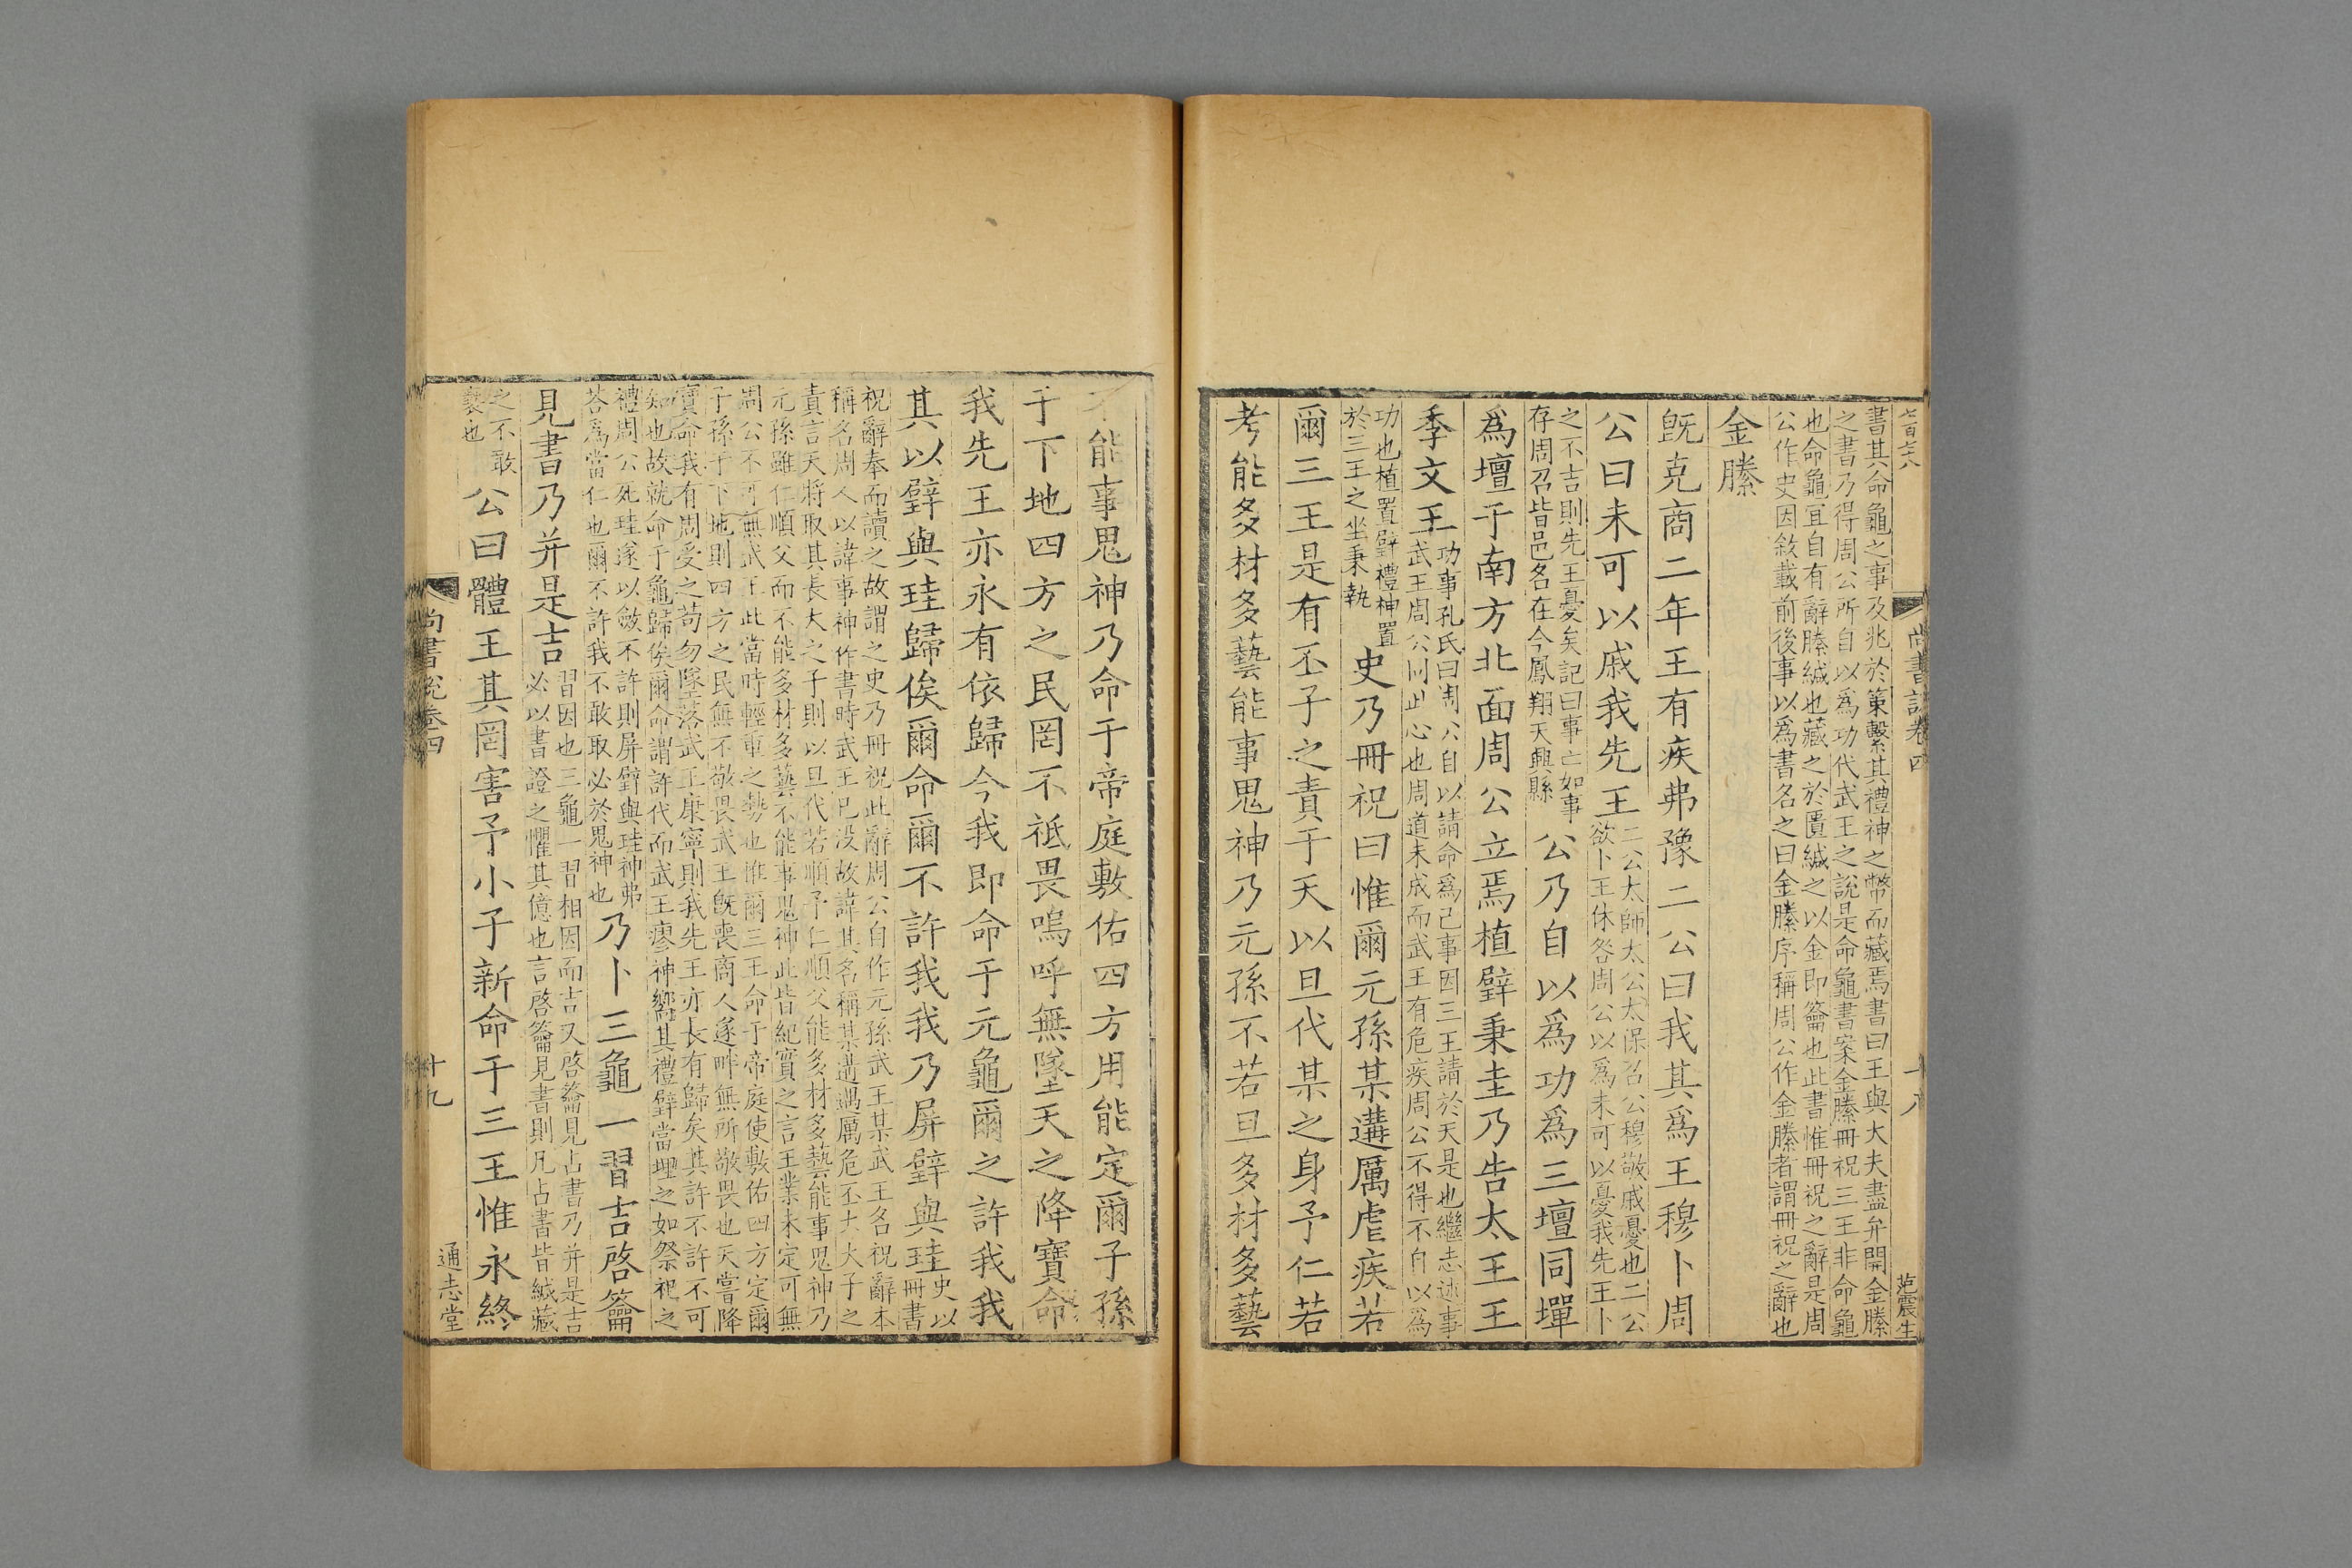 七百六八
尚書說卷四
十八
范震生
書其命龜之事及兆於策繫其禮神之幣而藏焉書曰王與大夫盡弁開金縢
之書乃得周公所自以爲功代武王之說是命龜書案金縢冊祝三王非命龜
也命龜宜自有辭縢緘也藏之於匱緘之以金即籥也此書惟冊祝之辭是周
公作史因敘載前後事以爲書名之曰金縢序稱周公作金縢者謂冊祝之辭也
金縢
旣克商二年王有疾弗豫二公曰我其爲王穆卜周
公曰未可以戚我先王二公太師太公太保召公穆敬戚憂也二公
欲卜王休咎周公以爲未可以憂我先王卜
之不吉則先王憂矣記曰事亡如事
存周召皆邑名在今鳳翔天興縣公乃自以爲功爲三壇同墠
爲壇于南方北面周公立焉植璧秉圭乃告太王王
季文王功事孔氏曰周公自以請命爲己事因三王請於天是也繼志述事
武王周公同此心也周道未成而武王有危疾周公不得不自以爲
功也植置璧禮神置
於三王之坐秉執史乃冊祝曰惟爾元孫某遘厲虐疾若
爾三王是有丕子之責于天以旦代某之身予仁若
考能多材多藝能事鬼神乃元孫不若旦多材多藝
不能事鬼神乃命于帝庭敷佑四方用能定爾子孫
于下地四方之民罔不祗畏嗚呼無墜天之降寶命
我先王亦永有依歸今我即命于元龜爾之許我我
其以璧與珪歸俟爾命爾不許我我乃屏璧與珪史以
冊書
祝辭奉而讀之故謂之史乃冊祝此辭周公自作元孫武王某武王名祝辭本
稱名周人以諱事神作書時武王已没故諱其名稱某遘遇厲危丕大大子之
責言天將取其長大之子則以旦代若順予仁順父能多材多藝能事鬼神乃
元孫雖仁順父而不能多材多藝不能事鬼神此皆紀實之言王業未定可無
周公不可無武王此當時輕重之勢也惟爾三王命于帝庭使敷佑四方定爾
子孫于下地則四方之民無不敬畏武王旣喪商人遂畔無所敬畏也天嘗降
寶命我有周受之苟勿墜落武王康寧則我先王亦長有歸矣其許不許不可
知也故就命于龜歸俟爾命謂許代而武王瘳神嚮其禮璧當埋之如祭祀之
禮周公死珪遂以斂不許則屏璧與珪神弗
荅爲當仁也爾不許我不敢取必於鬼神也乃卜三龜一習吉啓籥
見書乃并是吉習因也三龜一習相因而吉又啓籥見占書乃并是吉
必以書證之懼其億也言啓籥見書則凡占書皆緘藏
之不敢
褻也公曰體王其罔害予小子新命于三王惟永終
尚書說卷四
十九
通志堂